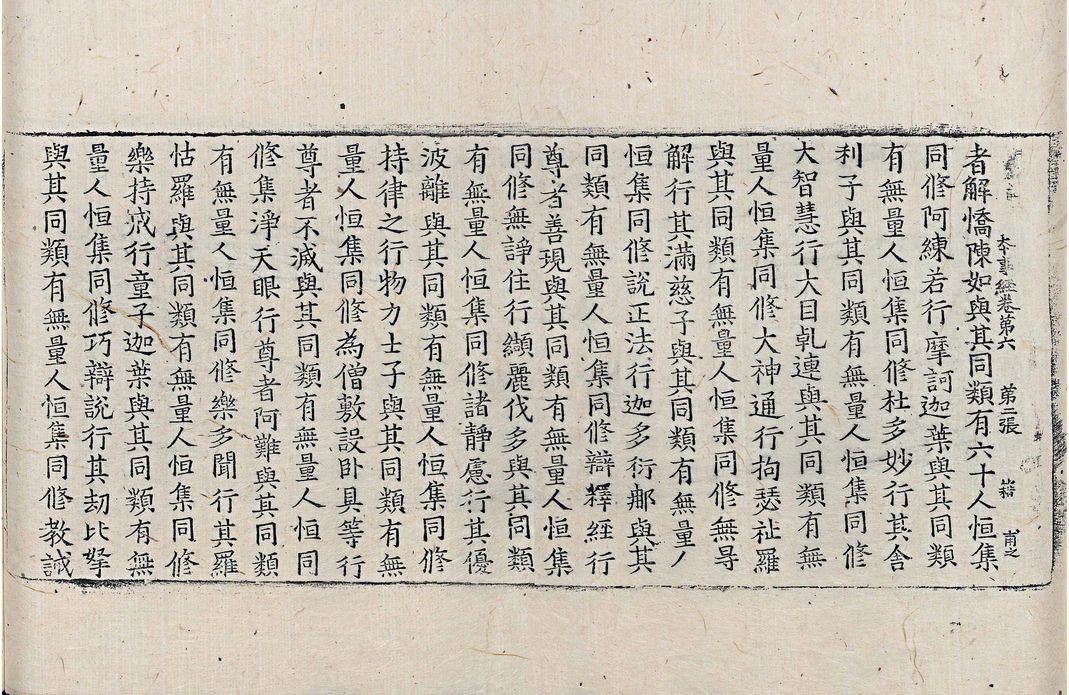 本事經卷第六 第二張 籍
者解憍陳如與其同類有六十人恒集
同修阿練若行摩訶迦葉與其同類
有無量人恒集同修杜多妙行其舍
利子與其同類有無量人恒集同修
大智慧行大目乹連與其同類有無
量人恒集同修大神通行拘瑟祉羅
與其同類有無量人恒集同修無㝵
解行其滿慈子與其同類有無量人
恒集同修說正法行迦多衍那與其
同類有無量人恒集同修辯釋經行
尊者善現與其同類有無量人恒集
同修無諍住行纈麗伐多與其同類
有無量人恒集同修諸靜慮行其優
波離與其同類有無量人恒集同修
持律之行物力士子與其同類有無
量人恒集同修為僧敷設卧具等行
尊者不滅與其同類有無量人恒同
修集淨天眼行尊者阿難與其同類
有無量人恒集同修樂多聞行其羅
怙羅與其同類有無量人恒集同修
樂持戒行童子迦葉與其同類有無
量人恒集同修巧辯說行其劫比拏
與其同類有無量人恒集同修教誡